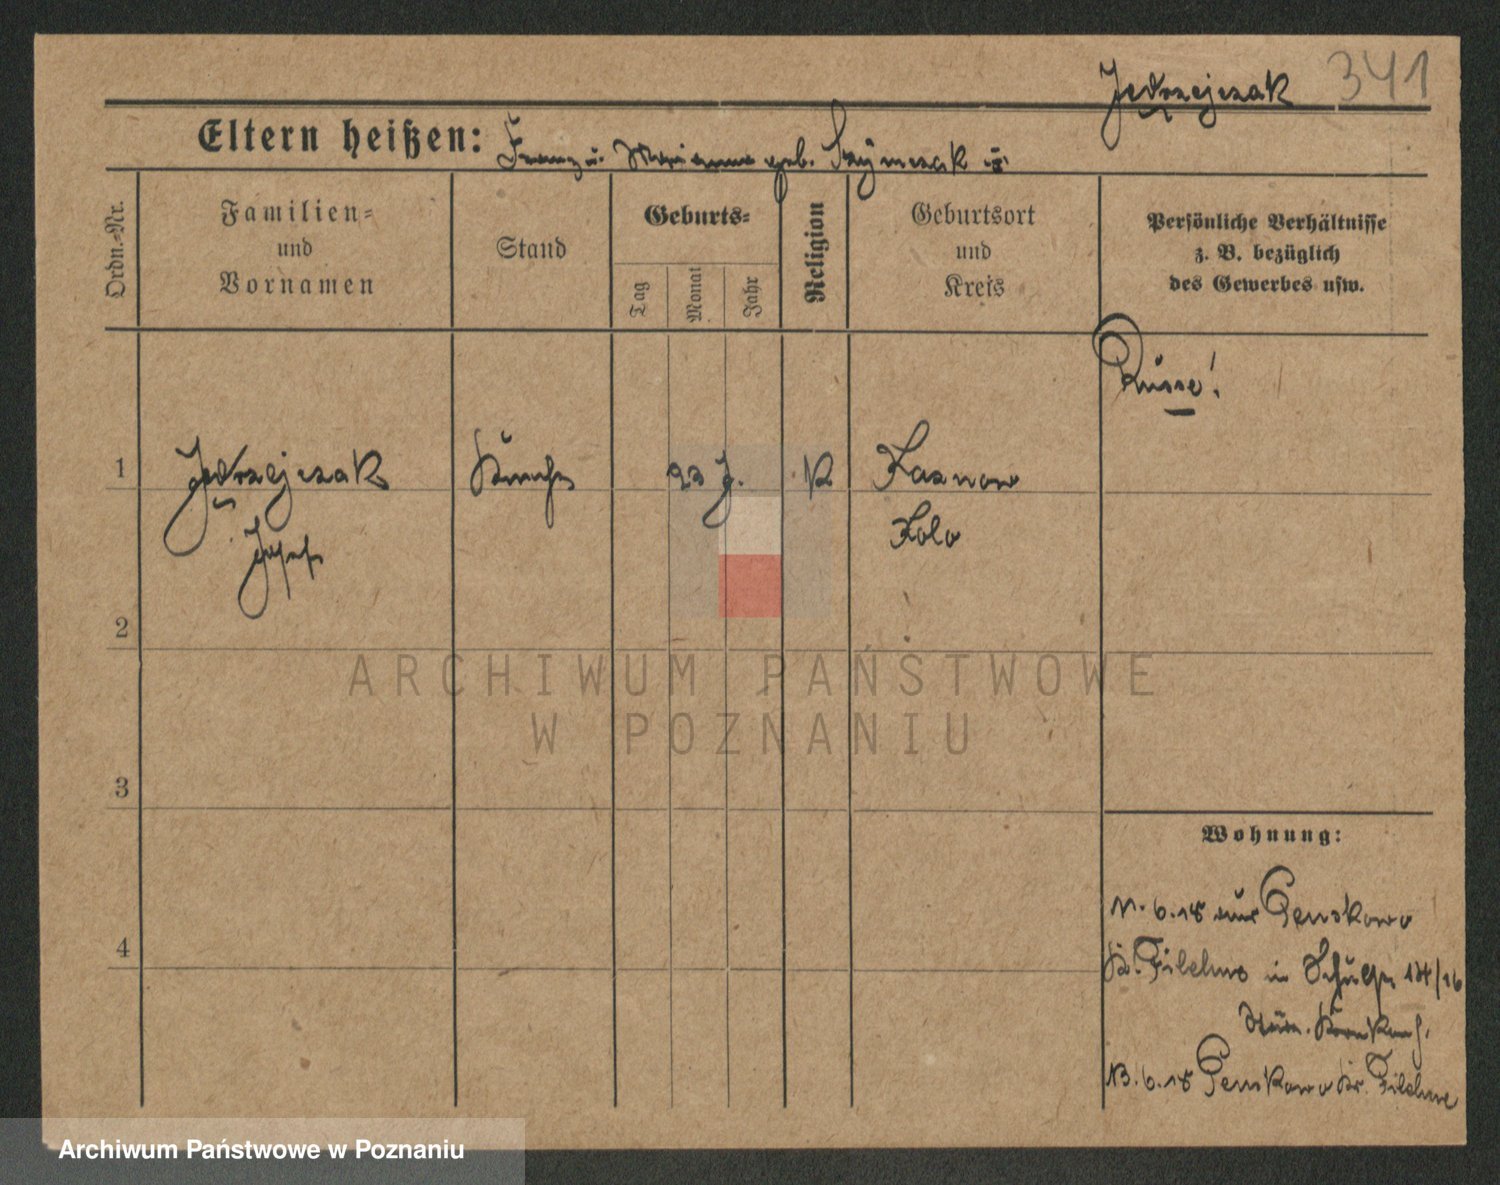 341
Jedrzejczak
Eltern heißen: Franz u. Marianne geb. Szymczak
Ordn.-Nr.
Familien-
und
Vornamen
Stand
Geburts-
Tag
Monat
Jahr
Religion
Geburtsort
und
Kreis
Persönliche Verhältnisse
z. B. bezüglich
des Gewerbes usw.
Russe!
1
Jedrzejczak
Josef
23 J.
K
Kolo
2
ARCHIWUM PAŃSTWOWE
W POZNANIU
3
Wohnung:
4
11.6.18 aus Penskowo
Kr. Filehne in 14/16
Städt. Krankenh.
13.6.18 Penskowo Kr. Filehne
Archiwum Państwowe w Poznaniu